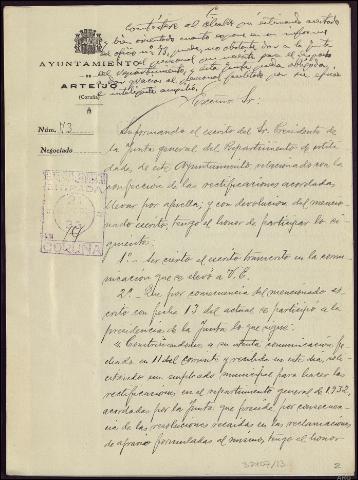 Contestar al Alcalde que estimando acertado
bien orientado cuanto expone en su informe
del oficio nº 73, puede, no obstante dar a la Junta
el personal con
del Repartimiento, y esta Junta queda obligada,
a dar gracias al personal facilitado por su eficaz
e inteligente auxilio.
AYUNTAMIENTO
DE
ARTEIJO
(Coruña)
Núm. 73
Negociado
Excmo Sr.
Informando el escrito del Sr. Presidente de
la Junta general del Repartimiento de utili-
dades, de este Ayuntamiento relacionado con la
confeccion de las rectificaciones acordadas
llevar por aquella; y con devolucion del mencio-
nado escrito, tengo el honor de participar lo si-
guiente:
1º.- Ser cierto el escrito transcrito en la comu-
nicacion que se elevó a V.E.
2º.- Que por consecuencia del mencionado es-
crito con fecha 13 del actual se participó a la
presidencia de la Junta lo que sigue:
"Contestandome a su atenta comunicacion, fe-
chada en 11 del corriente y recibida en este dia, soli-
citando un empleado municipal para hacer las
rectificaciones en el repartimiento general de 1932,
acordadas por la Junta que preside, por consecuen-
cia de las resoluciones recaidas en las reclamaciones
de agravio formuladas al mismo; tengo el honor
CORUÑA
37107/13
2